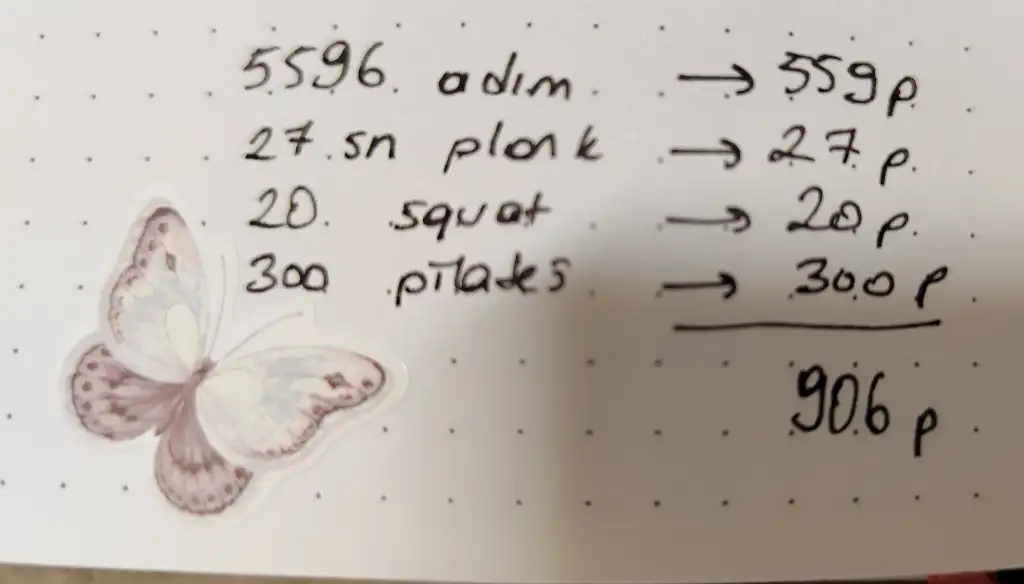 5596 adım → 559 p.
27 sn plank → 27 p.
20 squat → 20 p.
300 pilates → 300 p
906 p